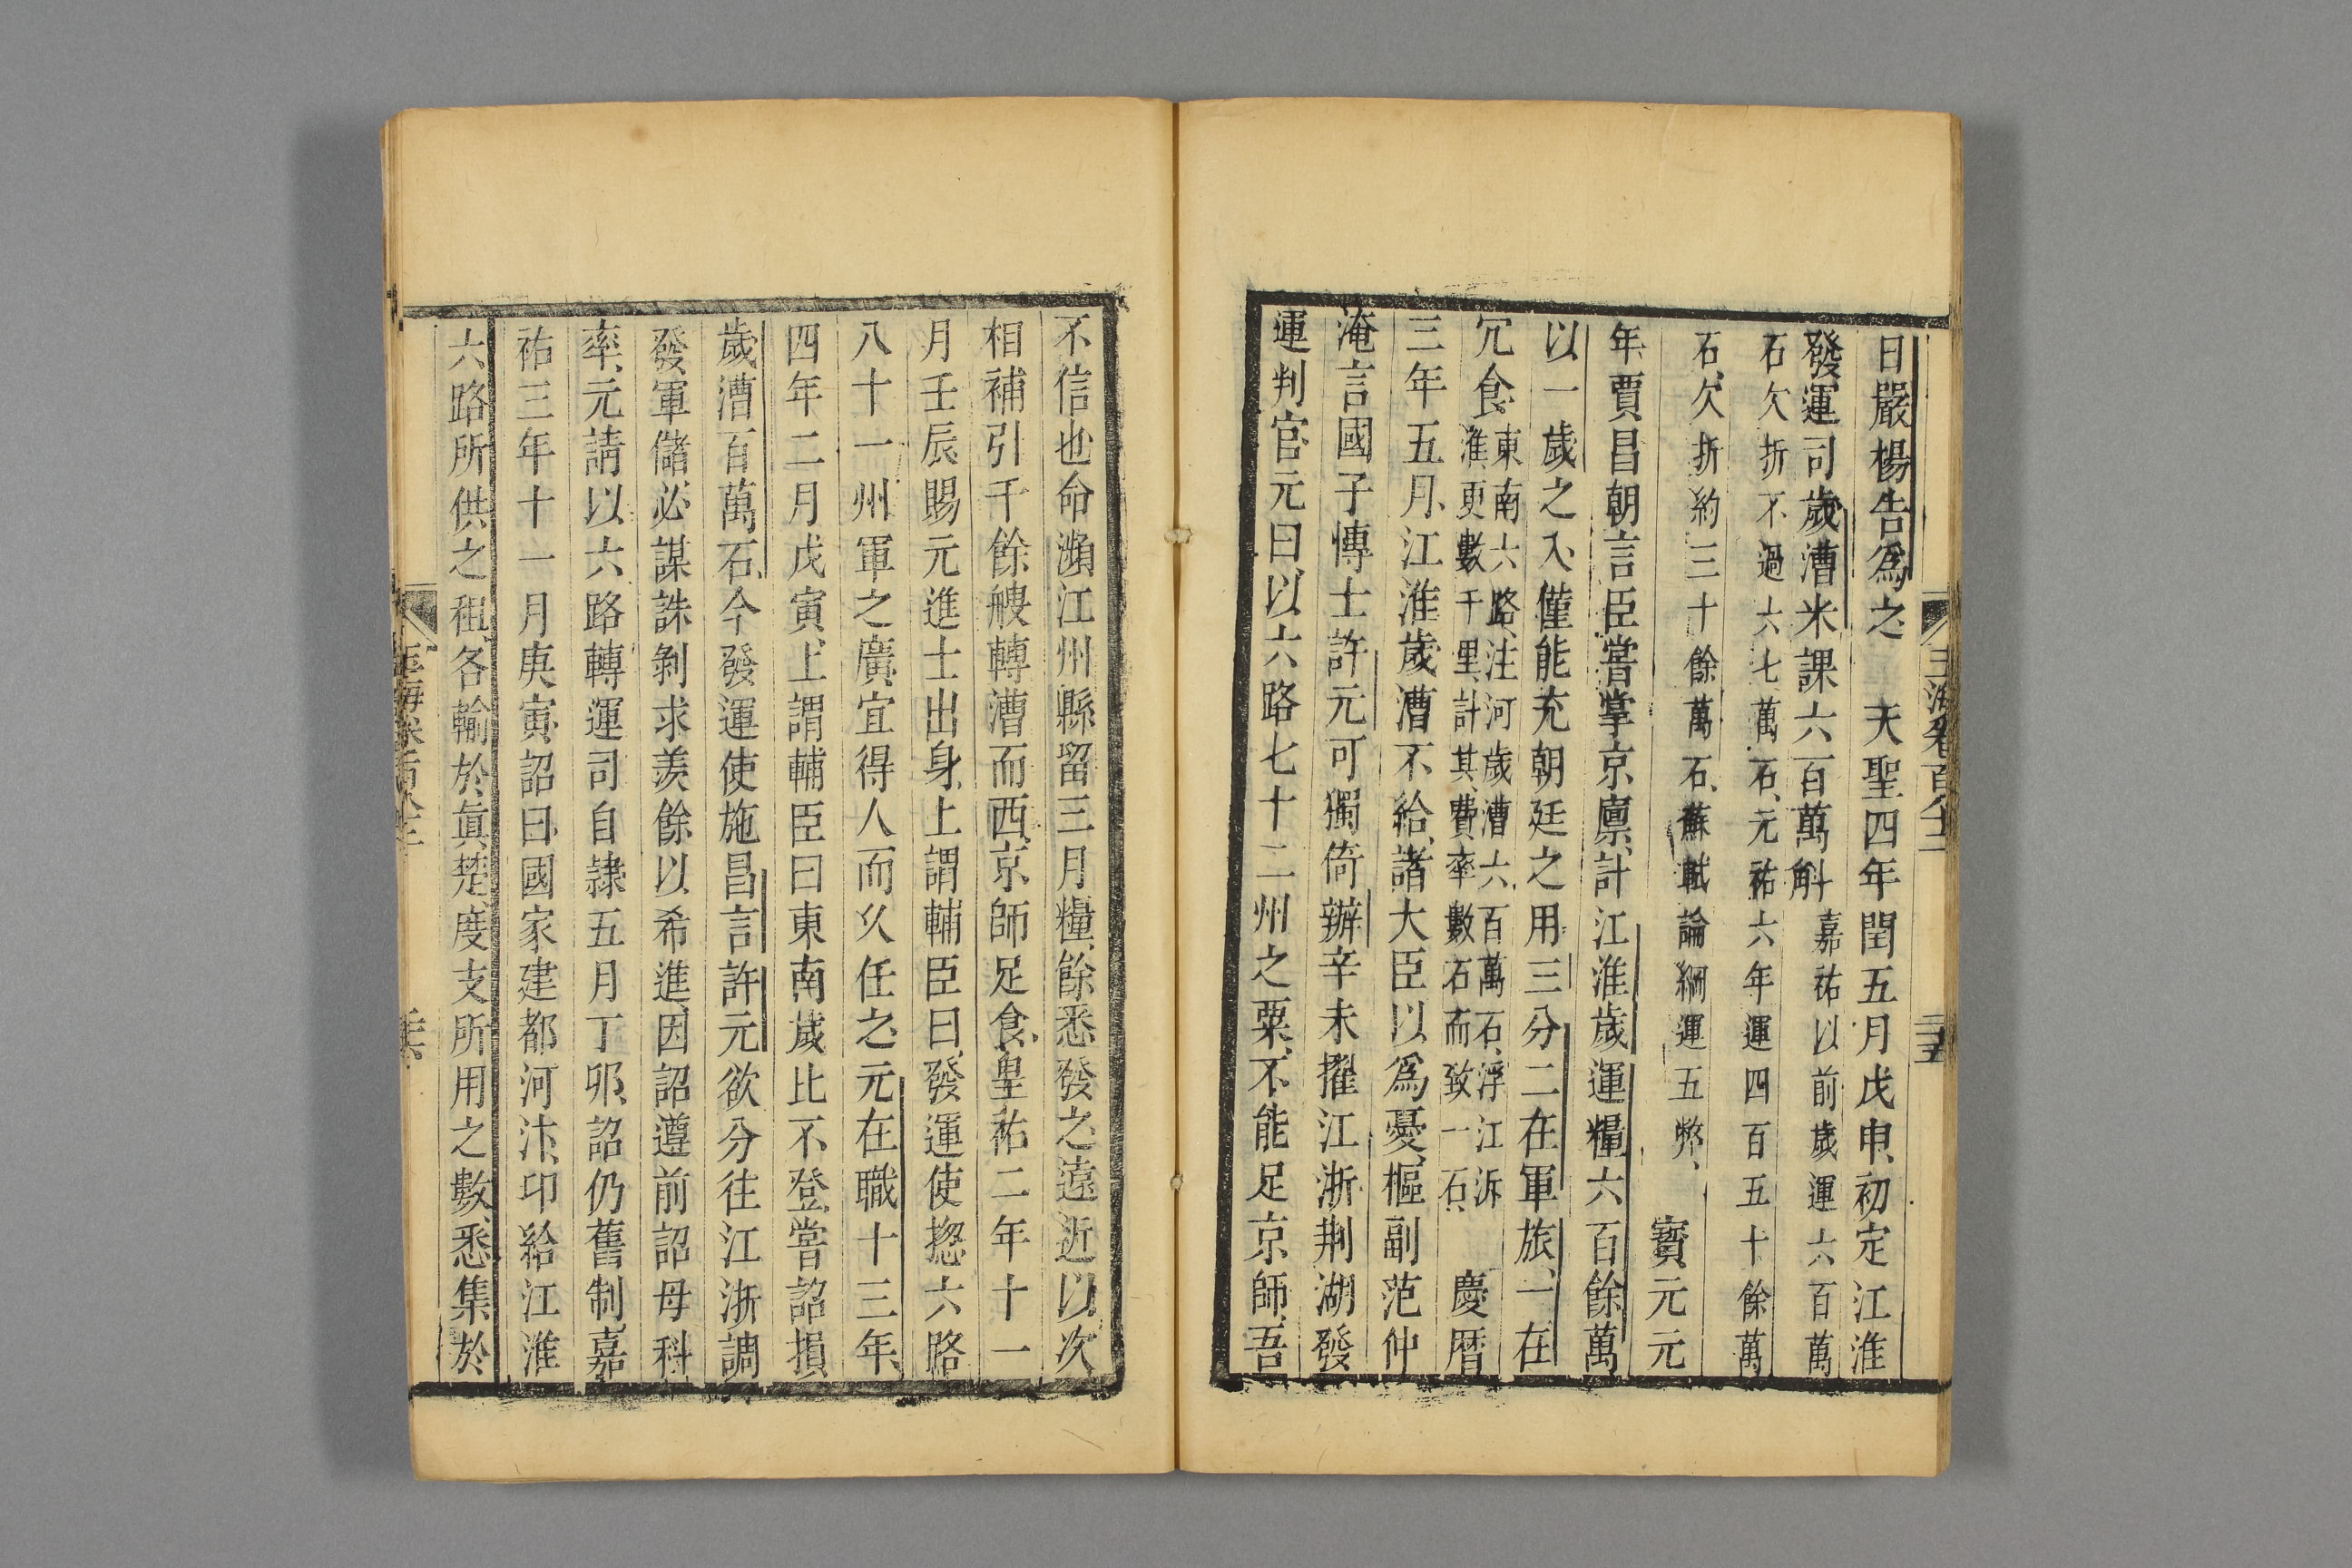 玉海卷百八十二
二十五
日嚴楊告爲之　天聖四年閏五月戊申初定江淮
發運司歲漕米課六百萬斛嘉祐以前歲運六百萬
石欠折不過六七萬石元祐六年運四百五十餘萬
石欠折約三十餘萬石蘇軾論綱運五弊　寶元元
年賈昌朝言臣嘗掌京廪計江淮歲運糧六百餘萬
以一歲之入僅能充朝廷之用三分二在軍旅一在
冗食東南六路注河歲漕六百萬石浮江泝
淮更數千里計其費率數石而致一石　慶曆
三年五月江淮歲漕不給諸大臣以爲憂樞副范仲
淹言國子博士許元可獨倚辦辛未擢江浙荆湖發
運判官元曰以六路七十二州之粟不能足京師吾
不信也命瀕江州縣留三月糧餘悉發之遠近以次
相補引千餘艘轉漕而西京師足食皇祐二年十一
月壬辰賜元進士出身上謂輔臣曰發運使揔六路
八十一州軍之廣宜得人而久任之元在職十三年
四年二月戊寅上謂輔臣曰東南歲比不登嘗詔損
歲漕百萬石今發運使施昌言許元欲分往江浙調
發軍儲必謀誅剝求羡餘以希進因詔遵前詔毋科
率元請以六路轉運司自隷五月丁卯詔仍舊制嘉
祐三年十一月庚寅詔曰國家建都河汴卬給江淮
六路所供之租各輸於眞楚度支所用之數悉集於
玉海卷百八十二